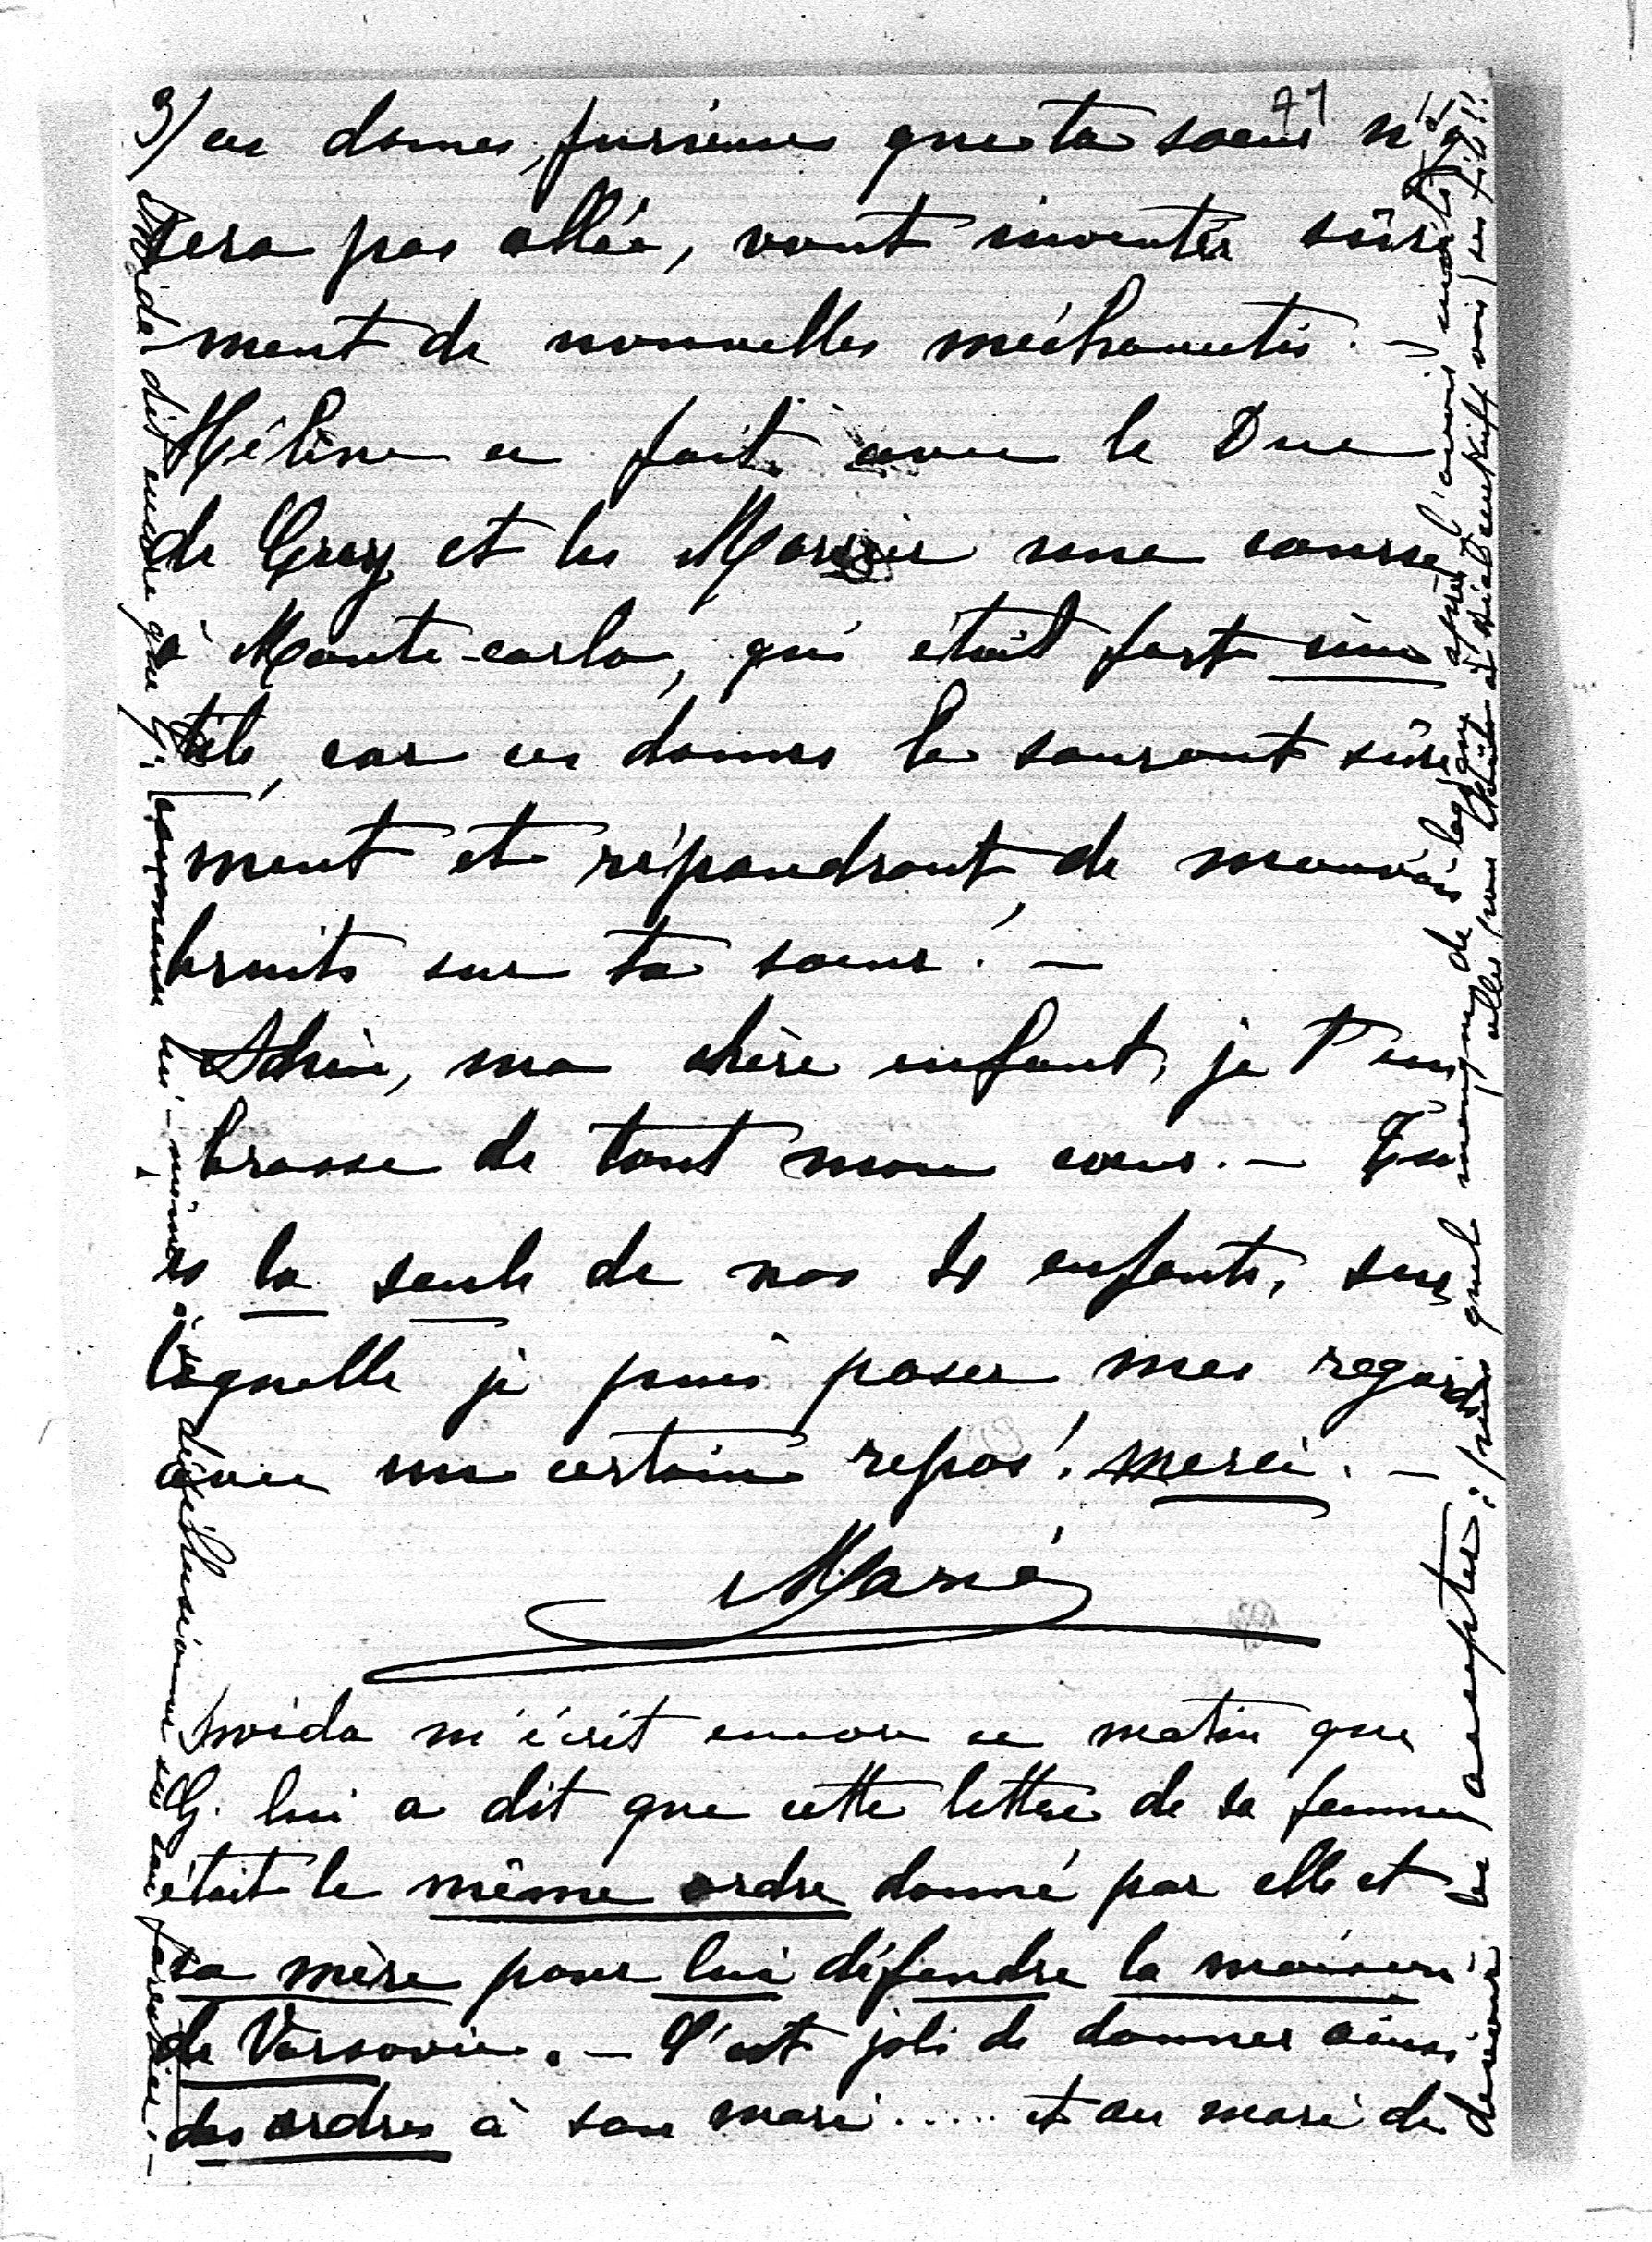 3) ces dames, furieuses que ta soeur n'y
sera pas allée, vont inventer sûre
ment de nouvelles méchancetés. —
Hélène a fait avec le Duc
de et les une course
à Monte-carlo, qui était fort inu
tile, car ces dames le sauront sûre
ment et répandront de mauvais
bruits sur ta soeur! —
ma chère enfant, je t'em
brasse de tout mon coeur. — Tu
es la seule de nos enfants, sur
laquelle je puis poser mes regards
avec un certain repos! merci. —
Marie
m'écrit encore ce matin que
G. lui a dit que cette lettre de sa femme
était le même ordre donné par elle et
sa mère pour lui défendre la maison
de Varsovie. — C'est joli de donner ainsi
des ordres à son mari ..... et au mari de
devoir les accepter; puis quel manque de après l'avoir
dit encore que G. commence lui-même à se désillusionner sur
71